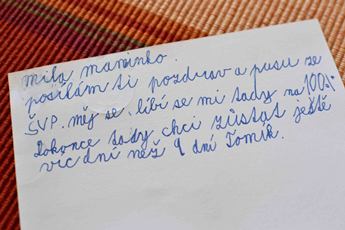 milá maminko.
posílám ti pozdrav a pusu ze
ŠVP. měj se. líbí se mi tady na 100%.
Dokonce tady chci zůstat ještě
víc dní než 9 dní Tomík.